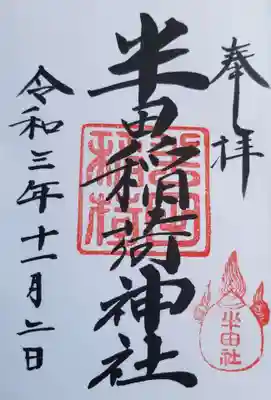 奉拝
半田稲荷神社
半田社
令和三年十一月二日